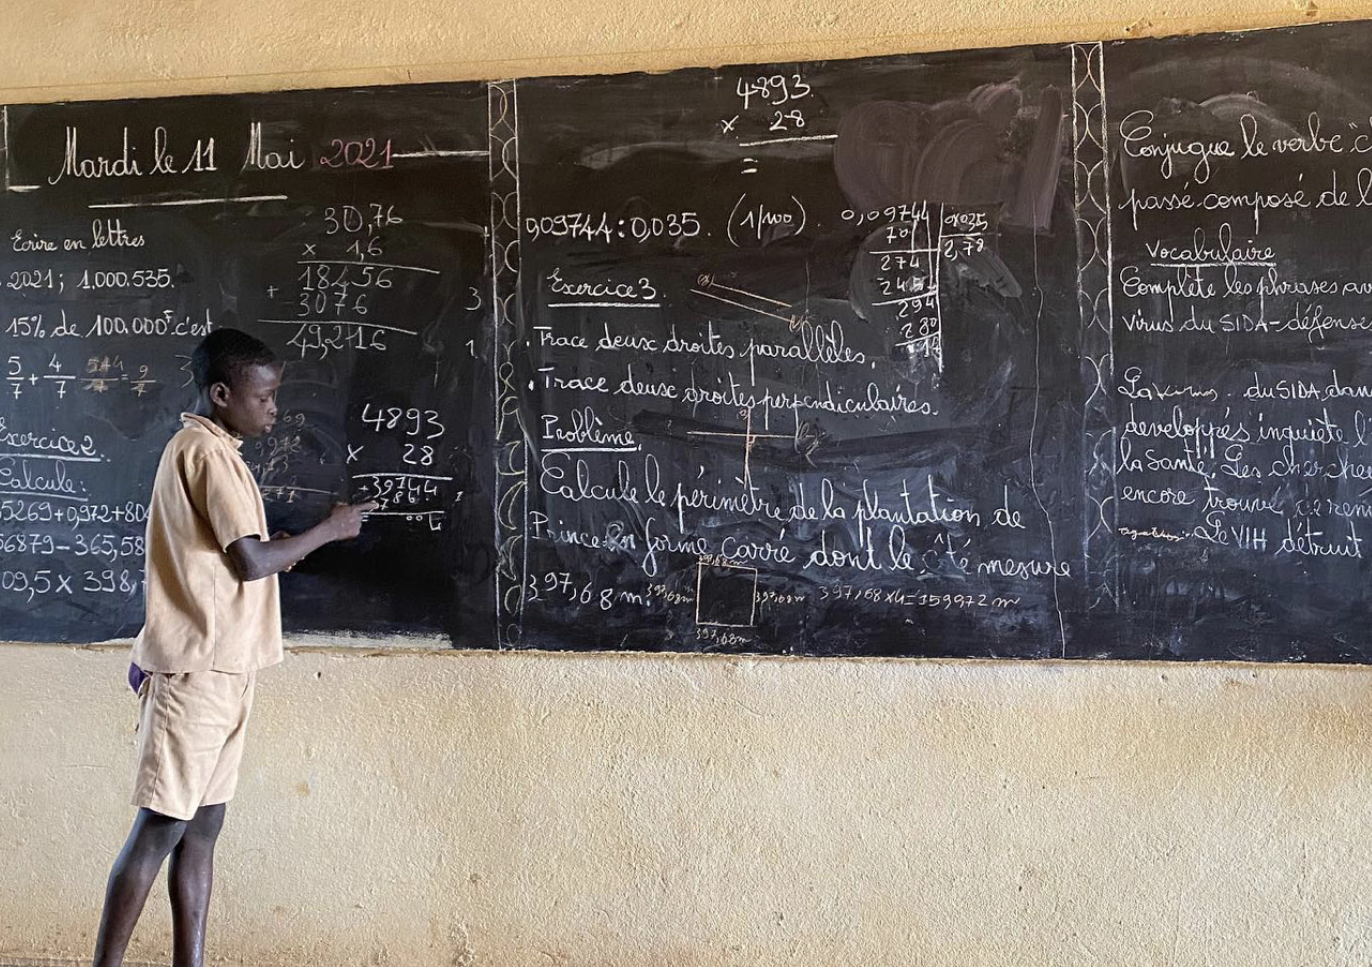 Mardi le 11 Mai 2021
Ecrire en lettres
2021; 1.000.535.
15% de 100.000F c'est
5/7 + 4/7 = 9/7
30,76
x 1,6
18456
+ 3076
49,216
3
1
Exercice 2.
Calcule:
5269+0,972+80
56879-365,58
09,5 x 398,
4893
x 28
4893
x 28
=
0,09744:0,035. (1/100)
0,09744 0,035
70 2,78
274
245
294
280
14
Exercice 3.
. Trace deux droites parallèles.
. Trace deux droites perpendiculaires.
Problème.
Calcule le périmètre de la plantation de
Prince en forme carré dont le côté mesure
397,68 m.
397,68m
397,68m 397,68m 397,68 x4=159972 m
397,68m
Conjugue le verbe "c
passé composé de l
Vocabulaire
Complète les phrases av
Virus du SIDA-défens
La du SIDA dan
developpés inquiete l
la Santé. Les cherche
encore trouvé
Le VIH détruit